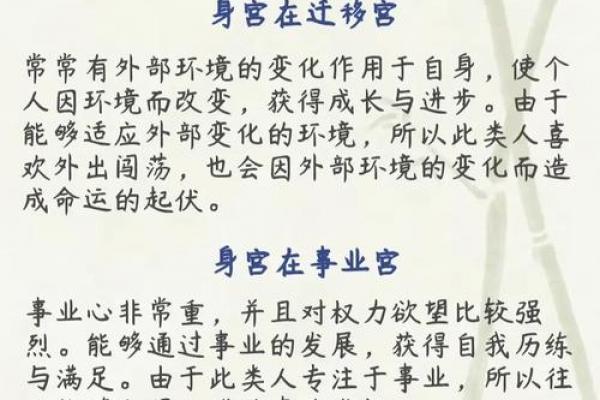 身宫在迁移宫
常常有外部环境的变化作用于自身，使个
人因环境而改变，获得成长与进步。由于
能够适应外部变化的环境，所以此类人喜
欢外出闯荡，也会因外部环境的变化而造
成命运的起伏。
身宫在事业宫
事业心非常重，并且对权力欲望比较强
烈。能够通过事业的发展，获得自我历练
与满足。由于此类人专注于事业，所以往